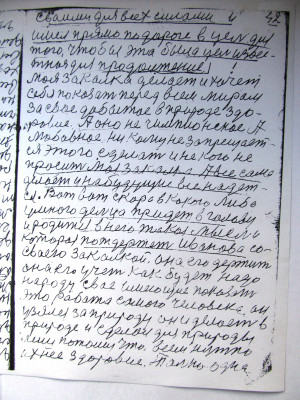 своими для всех силами и 42
имел прямо по дороге в цель для
того, чтобы эта была цель извес-
тная для продолжение.
Моя закалка делает и хочет
себя показать перед всем миром
за свое добытое в природе здо-
ровие. А оно не чемпионское А
любовное никому не запрещает-
ся этого сделать и не кого не
просить Моя закалка А все сама
делает и на будующие все надеет-
ся. Вот вот скоро в какого либо
умного дельца придет в голову
и родится в него такая мысль
которая поддержет Иванова со-
своею закалкой. она его держит
она его учет как будет надо
народу свое имеющие показать
это работа самого человека. он
взялся за природу он и делает в
природе и сделал для природы
ему потому что. всем надо
ихнее здоровие. Только одна